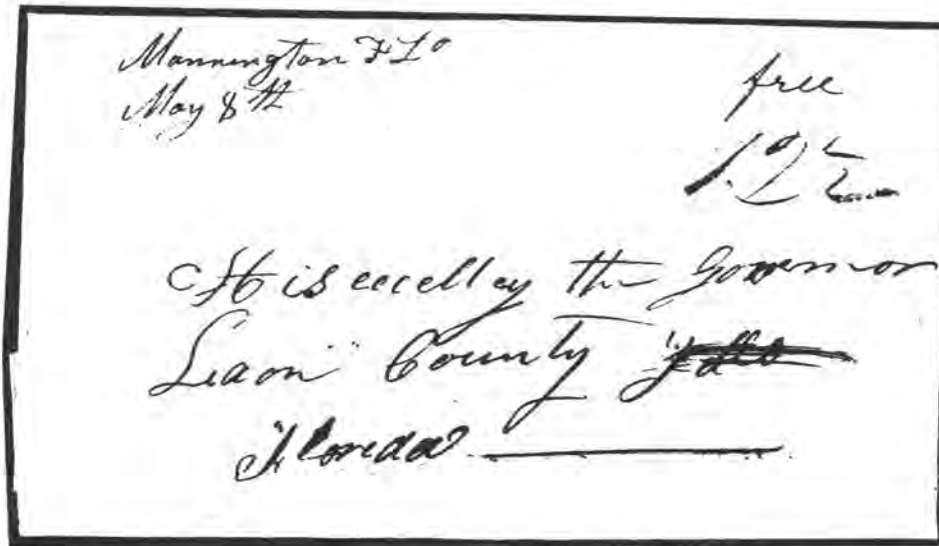 Mannington Flo
May 8th
free
12½
His excelley the Governor
Leaon County
Florida